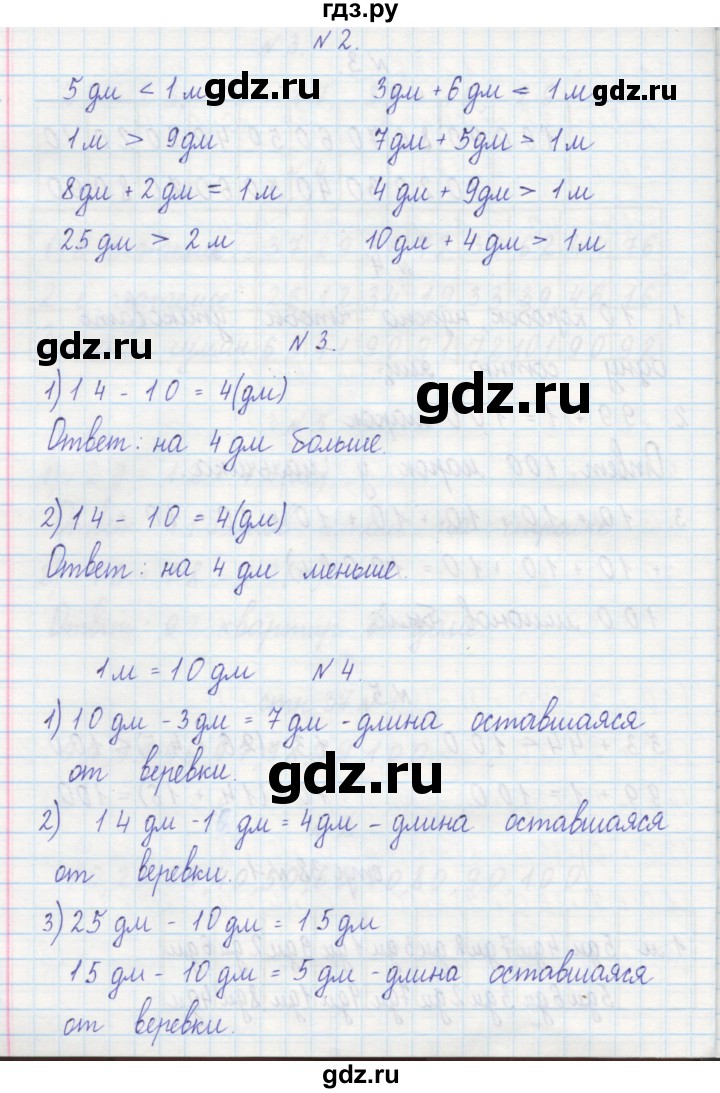 гдз.ру
N 2.
5 дм < 1 м 3дм + 6 дм = 1 м
1 м > 9дм 7дм + 5дм > 1м
8дм + 2 дм = 1 м 4 дм + 9дм > 1м
25 дм > 2 м 10дм + 4 дм > 1м
N 3.
1) 14 - 10 = 4(дм)
Ответ: на 4 дм больше.
2) 14 - 10 = 4(дм)
Ответ: на 4 дм меньше.
1м = 10 дм N 4.
1) 10 дм - 3дм = 7 дм - длина оставшаяся
от веревки.
2) 14 дм - 1 дм = 4дм - длина оставшаяся
от веревки.
3) 25 дм - 10 дм = 15 дм
15 дм - 10 дм = 5 дм - длина оставшаяся
от веревки.
gdz.ru
gdz.ru
gdz.ru
gdz.ru
gdz.ru
gdz.ru